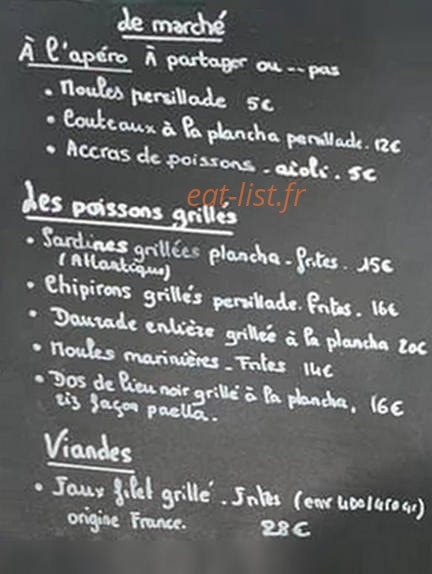 de marché
À l'apéro À partager ou -- pas
• Moules persillade 5€
• Couteaux à la plancha persillade. 12€
• Accras de poissons - aïoli. 5€
eat-list.fr
Les poissons grillés
• Sardines grillées plancha - frites. 15€
(Atlantique)
• Chipirons grillés persillade. frites. 16€
• Daurade entière grillée à la plancha 20€
• Moules marinières - Frites 14€
• Dos de lieu noir grillé à la plancha, 16€
riz façon paella.
Viandes
• Faux filet grillé. Frites (env 400/450gr)
origine France. 28€